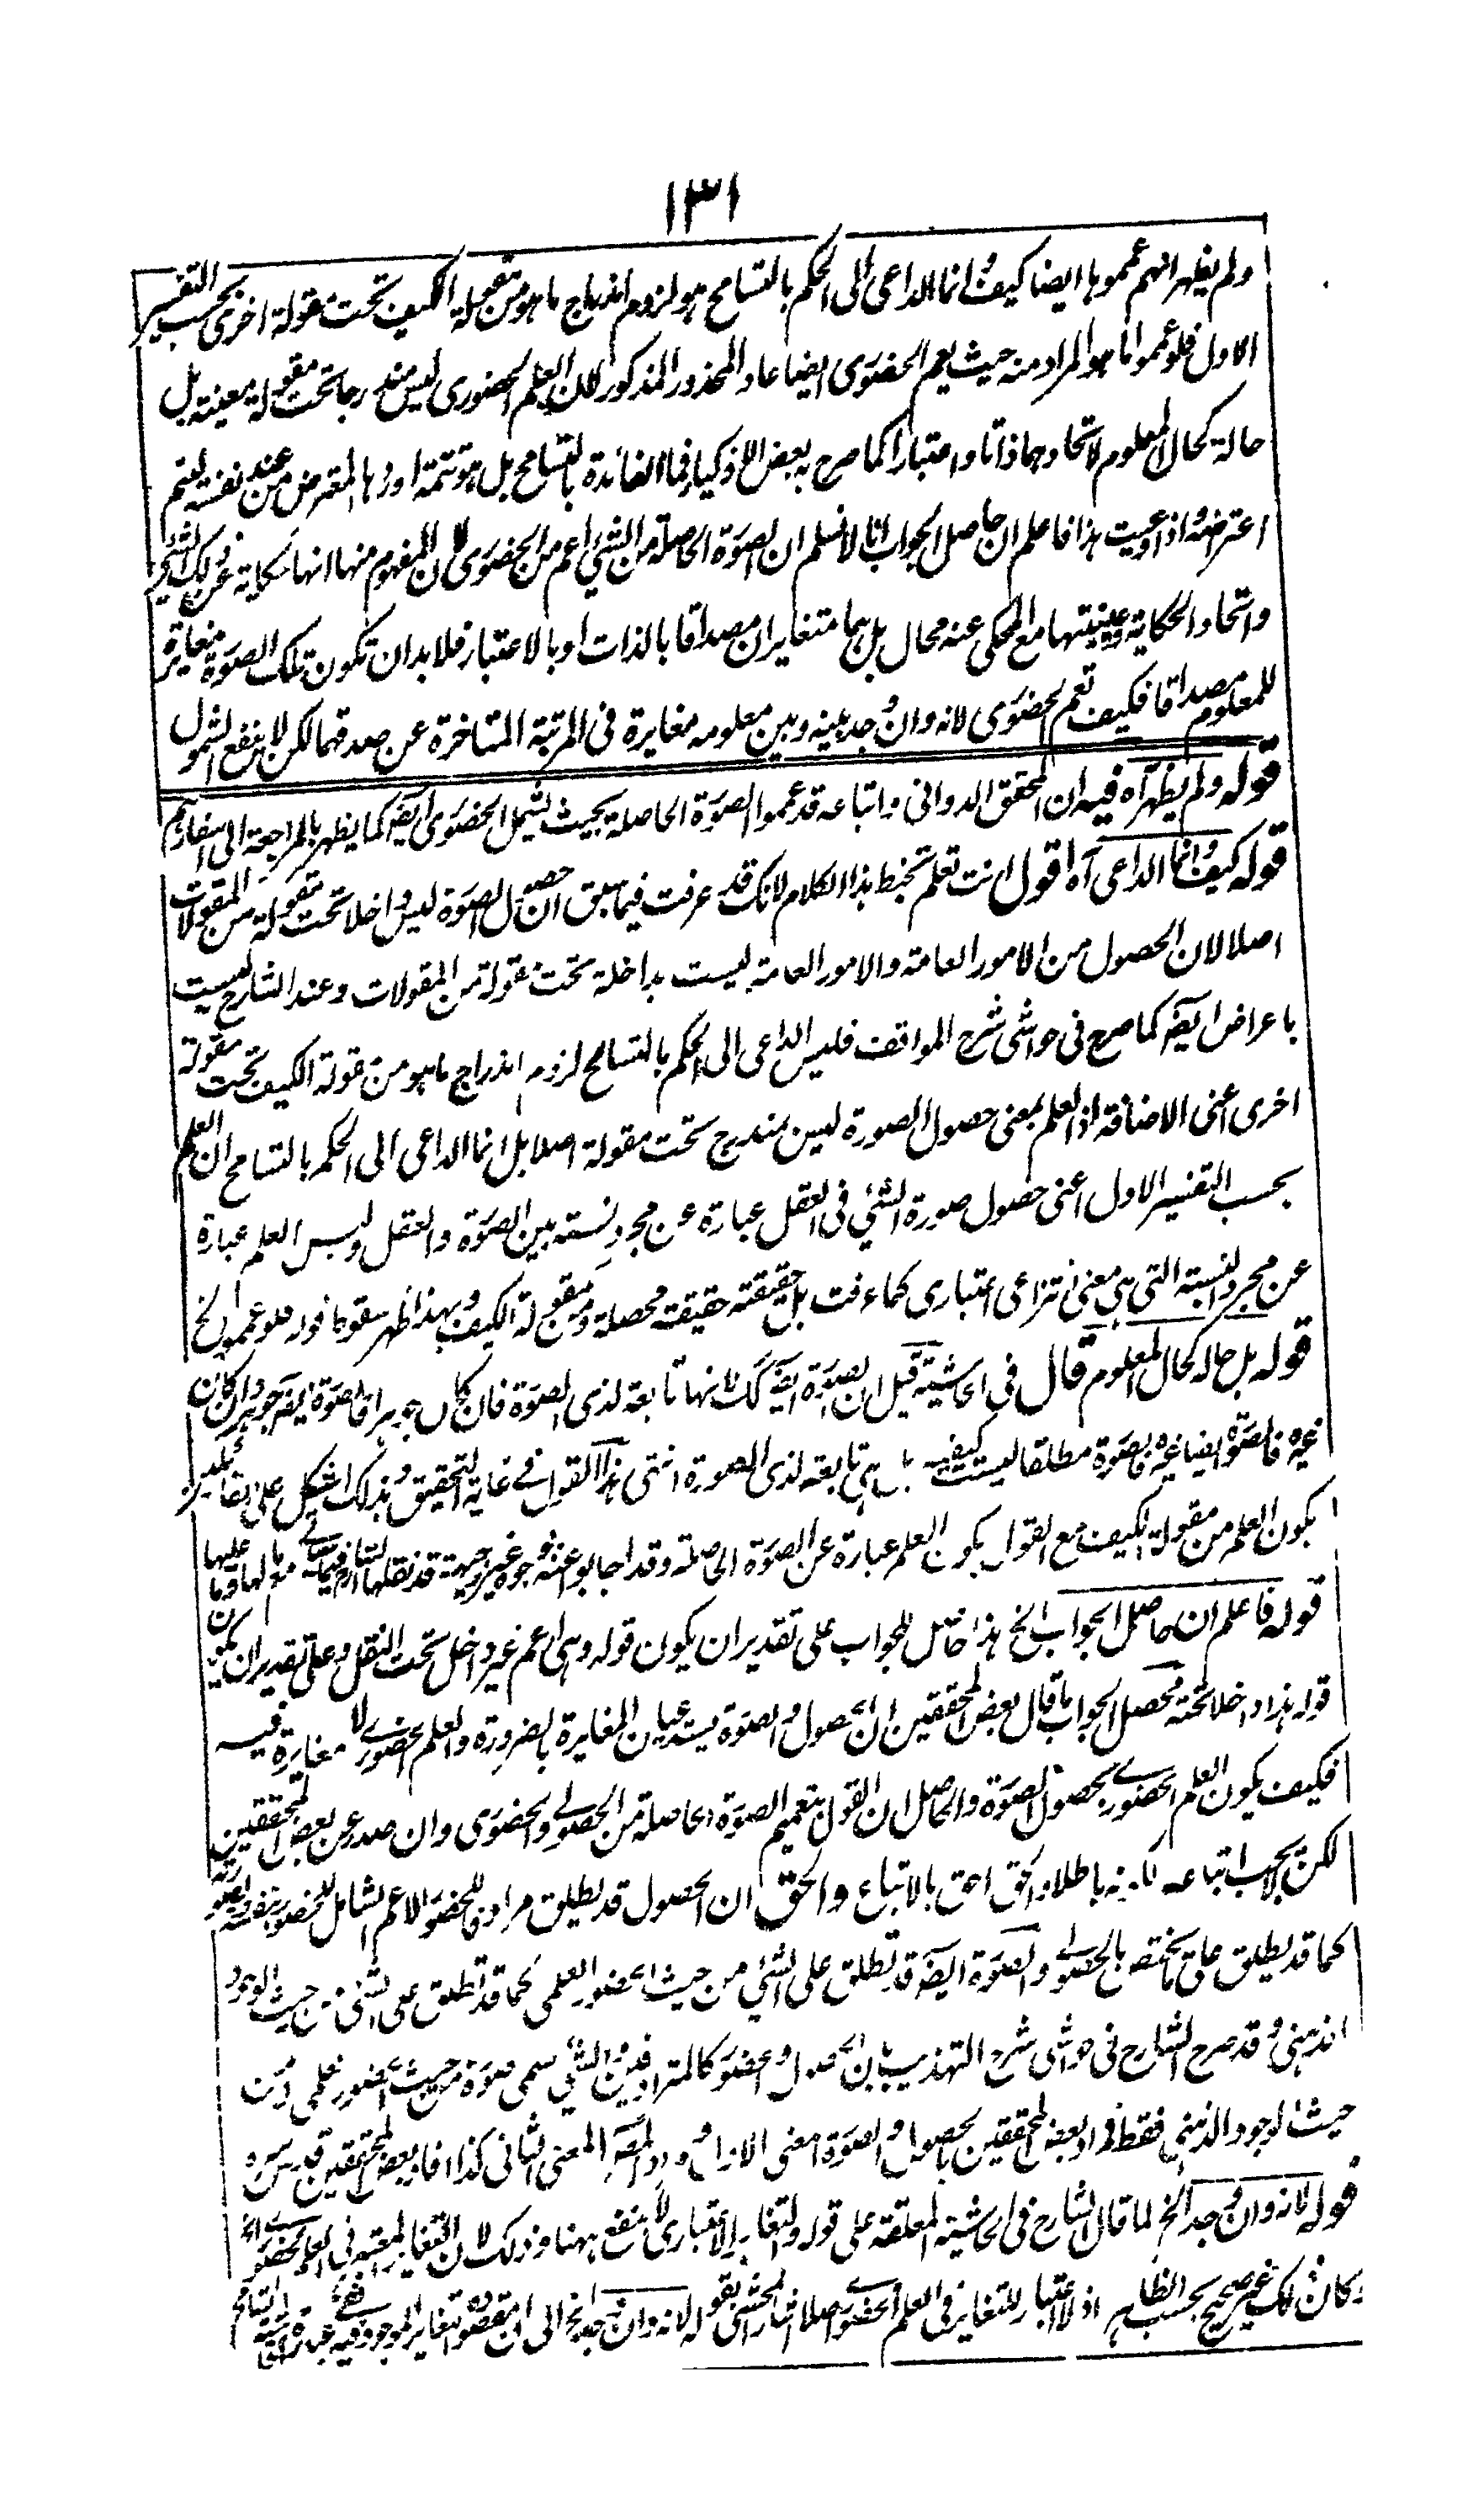 ١٣١
ولم يظهر انهم عمموها ايضا كيف وانما الداعى الى الحكم بالتسامح هو لزوم اندراج ما هو من مقولة الكيف تحت مقولة اخرى بحسب التفسير
الاول فلو عمموا ما هو المراد منه حيث يعم الحضورى ايضا عاد المحذور المذكور لان العلم الحضورى ليس مندرجا تحت مقولة معينة بل
حاله كحال المعلوم لاتحادهما ذاتا واعتبارا كما صرح به بعض الاذكياء فما الفائدة بالتسامح بل هو تتمة اوردها المعترض من عند نفسه ليتم
اعتراضه واذا وعيت هذا فاعلم ان حاصل الجواب انا لا نسلم ان الصورة الحاصلة من الشئ اعم من الحضورى لان المفهوم منها انها حكاية عن ذلك الشئ
واتحاد الحكاية وعينيتها مع المحكى عنه محال بل هما متغايران مصداقا بالذات او بالاعتبار فلا بد ان تكون تلك الصورة مغايرة
للمعلوم مصداقا فكيف تعم الحضورى لانه وان وجد بينه وبين معلومه مغايرة فى المرتبة المتاخرة عن صدقهما لكن لا ينفع الشمول
قوله ولم يظهر آه فيه ان المحقق الدوانى واتباعه قد عمموا الصورة الحاصلة بحيث تشمل الحضورى ايضا كما يظهر بالمراجعة الى اسفارهم
قوله كيف وانما الداعى آه اقول انت تعلم تخبط هذا الكلام لانك قد عرفت فيما سبق ان حصول الصورة ليس داخلا تحت مقولة من المقولات
اصلا لان الحصول من الامور العامة والامور العامة ليست بداخلة تحت مقولة من المقولات وعند الشارح ليست
باعراض ايضا كما صرح فى حواشى شرح المواقف فليس الداعى الى الحكم بالتسامح لزوم اندراج ما هو من مقولة الكيف تحت مقولة
اخرى اعنى الاضافة اذ العلم بمعنى حصول الصورة ليس بمندرج تحت مقولة اصلا بل انما الداعى الى الحكم بالتسامح ان العلم
بحسب التفسير الاول اعنى حصول صورة الشئ فى العقل عبارة عن مجرد نسبة بين الصورة والعقل وليس العلم عبارة
عن مجرد النسبة التى هى معنى انتزاعى اعتبارى كما عرفت بل حقيقته حقيقة محصلة ومن مقولة الكيف وبهذا ظهر سقوط قوله فلو عمموا الخ
قوله بل حاله كحال المعلوم قال فى الحاشية قيل ان الصورة ايضا كك لانها تابعة لذى الصورة فان كان جوهرا فالصورة ايضا جوهر وان كان
غيره فالصورة ايضا غيره فالصورة مطلقا ليست كيفية بل هى تابعة لذى الصورة انتهى هذا القول فى غاية التحقيق وبذلك اشكل على القائلين
بكون العلم من مقولة الكيف مع القول بكون العلم عبارة عن الصورة الحاصلة وقد اجابوا عنه بوجوه غير وجيهة قد نقلها الشارح فيما سياتى مع ما لها وما عليها
قوله فاعلم ان حاصل الجواب الخ هذا حاصل الجواب على تقدير ان يكون قوله وهى اعم غير داخل تحت النقل وعلى تقدير ان يكون
قوله هذا داخلا تحته محصل الجواب ما قال بعض المحققين ان الحصول والصورة يستدعيان المغايرة بالضرورة والعلم الحضورى لا مغايرة فيه
فكيف يكون العلم الحضورى بحصول الصورة والحاصل ان القول بتعميم الصورة الحاصلة من الحصولى والحضورى وان صدر عن بعض المحققين
لكن لا يجب اتباعه لكونه باطلا والحق احق بالاتباع والحق ان الحصول قد يطلق مرادفا للحضور الاعم الشامل للحضور بنفسه وبصورته
كما قد يطلق على ما يختص بالحصولى والصورة ايضا قد تطلق على الشئ من حيث الحضور العلمى كما قد تطلق على الشئ من حيث الوجود
الذهنى وقد صرح الشارح فى حواشى شرح التهذيب بان الحصول والحضور كالمترادفين وان الشئ سمى صورة من حيث الحضور العلمى ومن
حيث الوجود الذهنى فقط فمراد بعض المحققين بالحصول والصورة المعنى الاول ومراد المعترض المعنى الثانى كذا افاد بعض المحققين قدس سره
قوله لانه وان وجد الخ لما قال الشارح فى الحاشية المعلقة على قوله والتغاير الاعتبارى لا ينفع ههنا وذلك لان التغاير المعتبر فى العلم الحضورى الخ
وكان ذلك غير صحيح بحسب الظاهر اذ لا اعتبار للتغاير فى العلم الحضورى اصلا اشار المحشى بقوله لانه وان وجد الخ الى ان مقصوده التغاير الموجود فيه